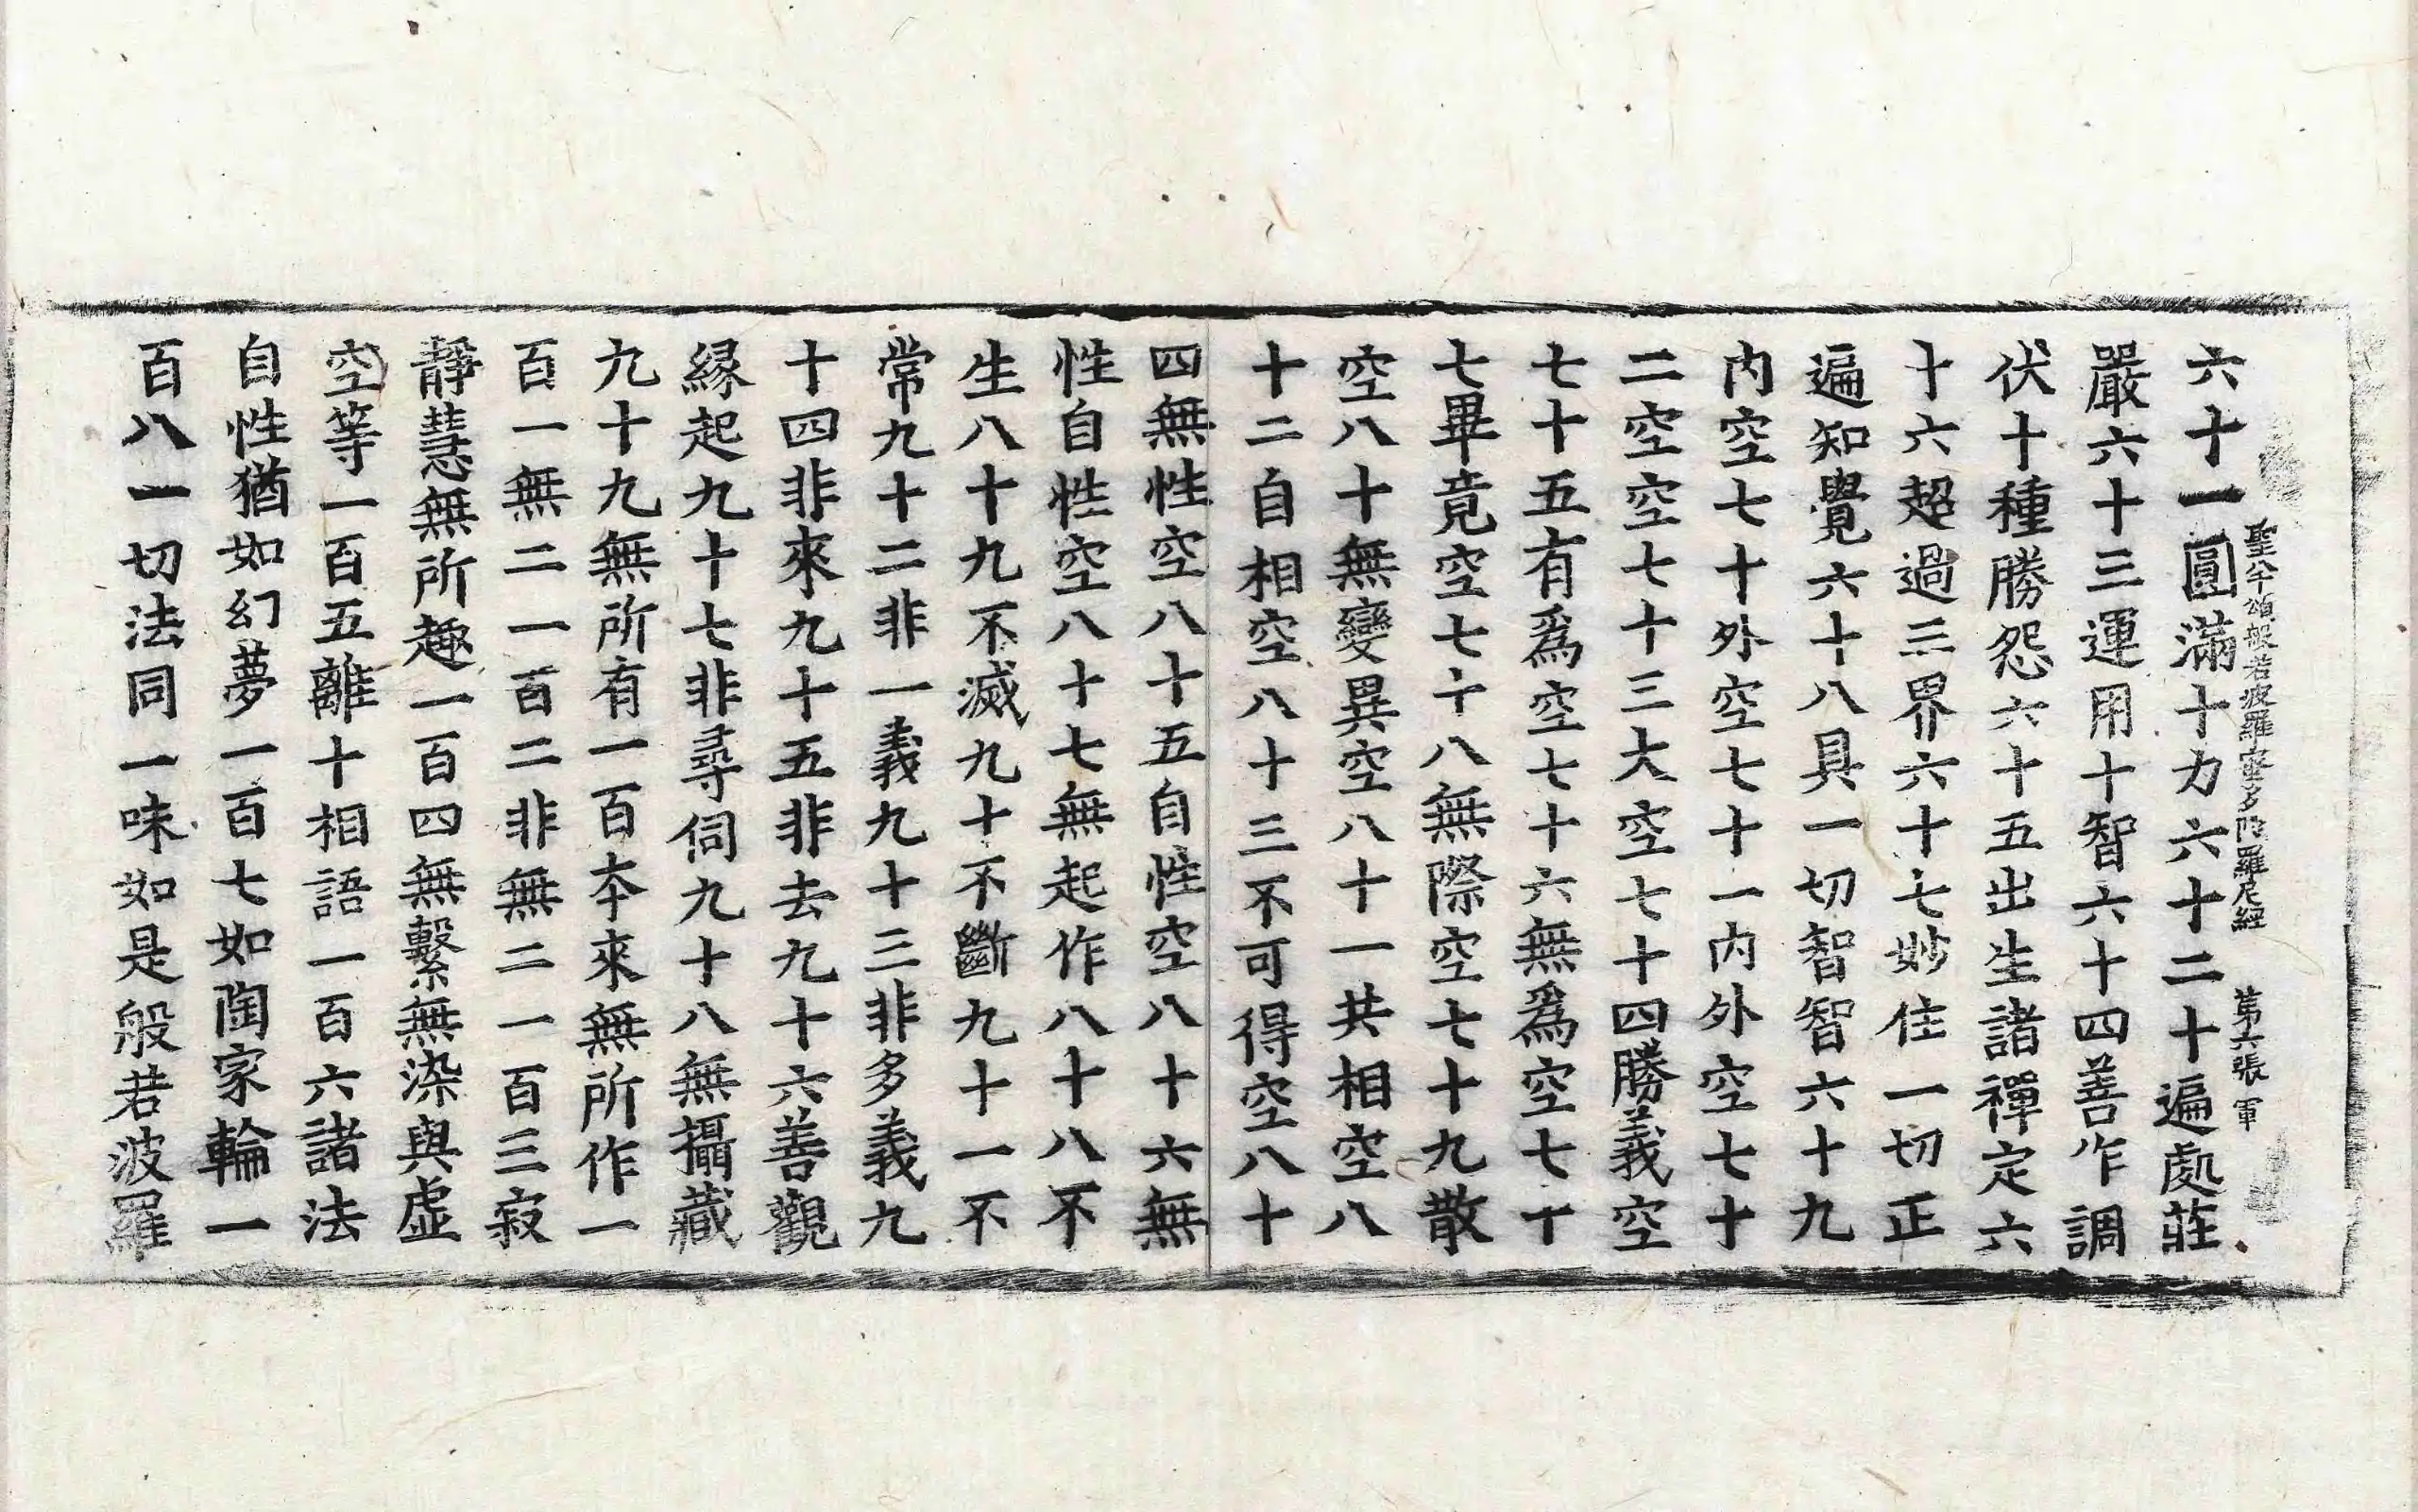 聖八千頌般若波羅蜜多陁羅尼經 第六張 軍
六十一圓滿十力六十二十遍處莊
嚴六十三運用十智六十四善作調
伏十種勝怨六十五出生諸禪定六
十六超過三界六十七妙住一切正
遍知覺六十八具一切智智六十九
内空七十外空七十一内外空七十
二空空空七十三大空七十四勝義空
七十五有爲空七十六無爲空七十
七畢竟空七十八無際空七十九散
空八十無變異空八十一共相空八
十二自相空八十三不可得空八十
四無性空八十五自性空八十六無
性自性空八十七無起作八十八不
生八十九不滅九十不斷九十一不
常九十二非一義九十三非多義九
十四非來九十五非去九十六善觀
緣起九十七非尋伺九十八無攝藏
九十九無所有一百夲來無所作一
百一無二一百二非無二一百三寂
靜慧無所趣一百四無繫無染與虛
空等一百五離十相語一百六諸法
自性猶如幻夢一百七如陶家輪一
百八一切法同一味如是般若波羅